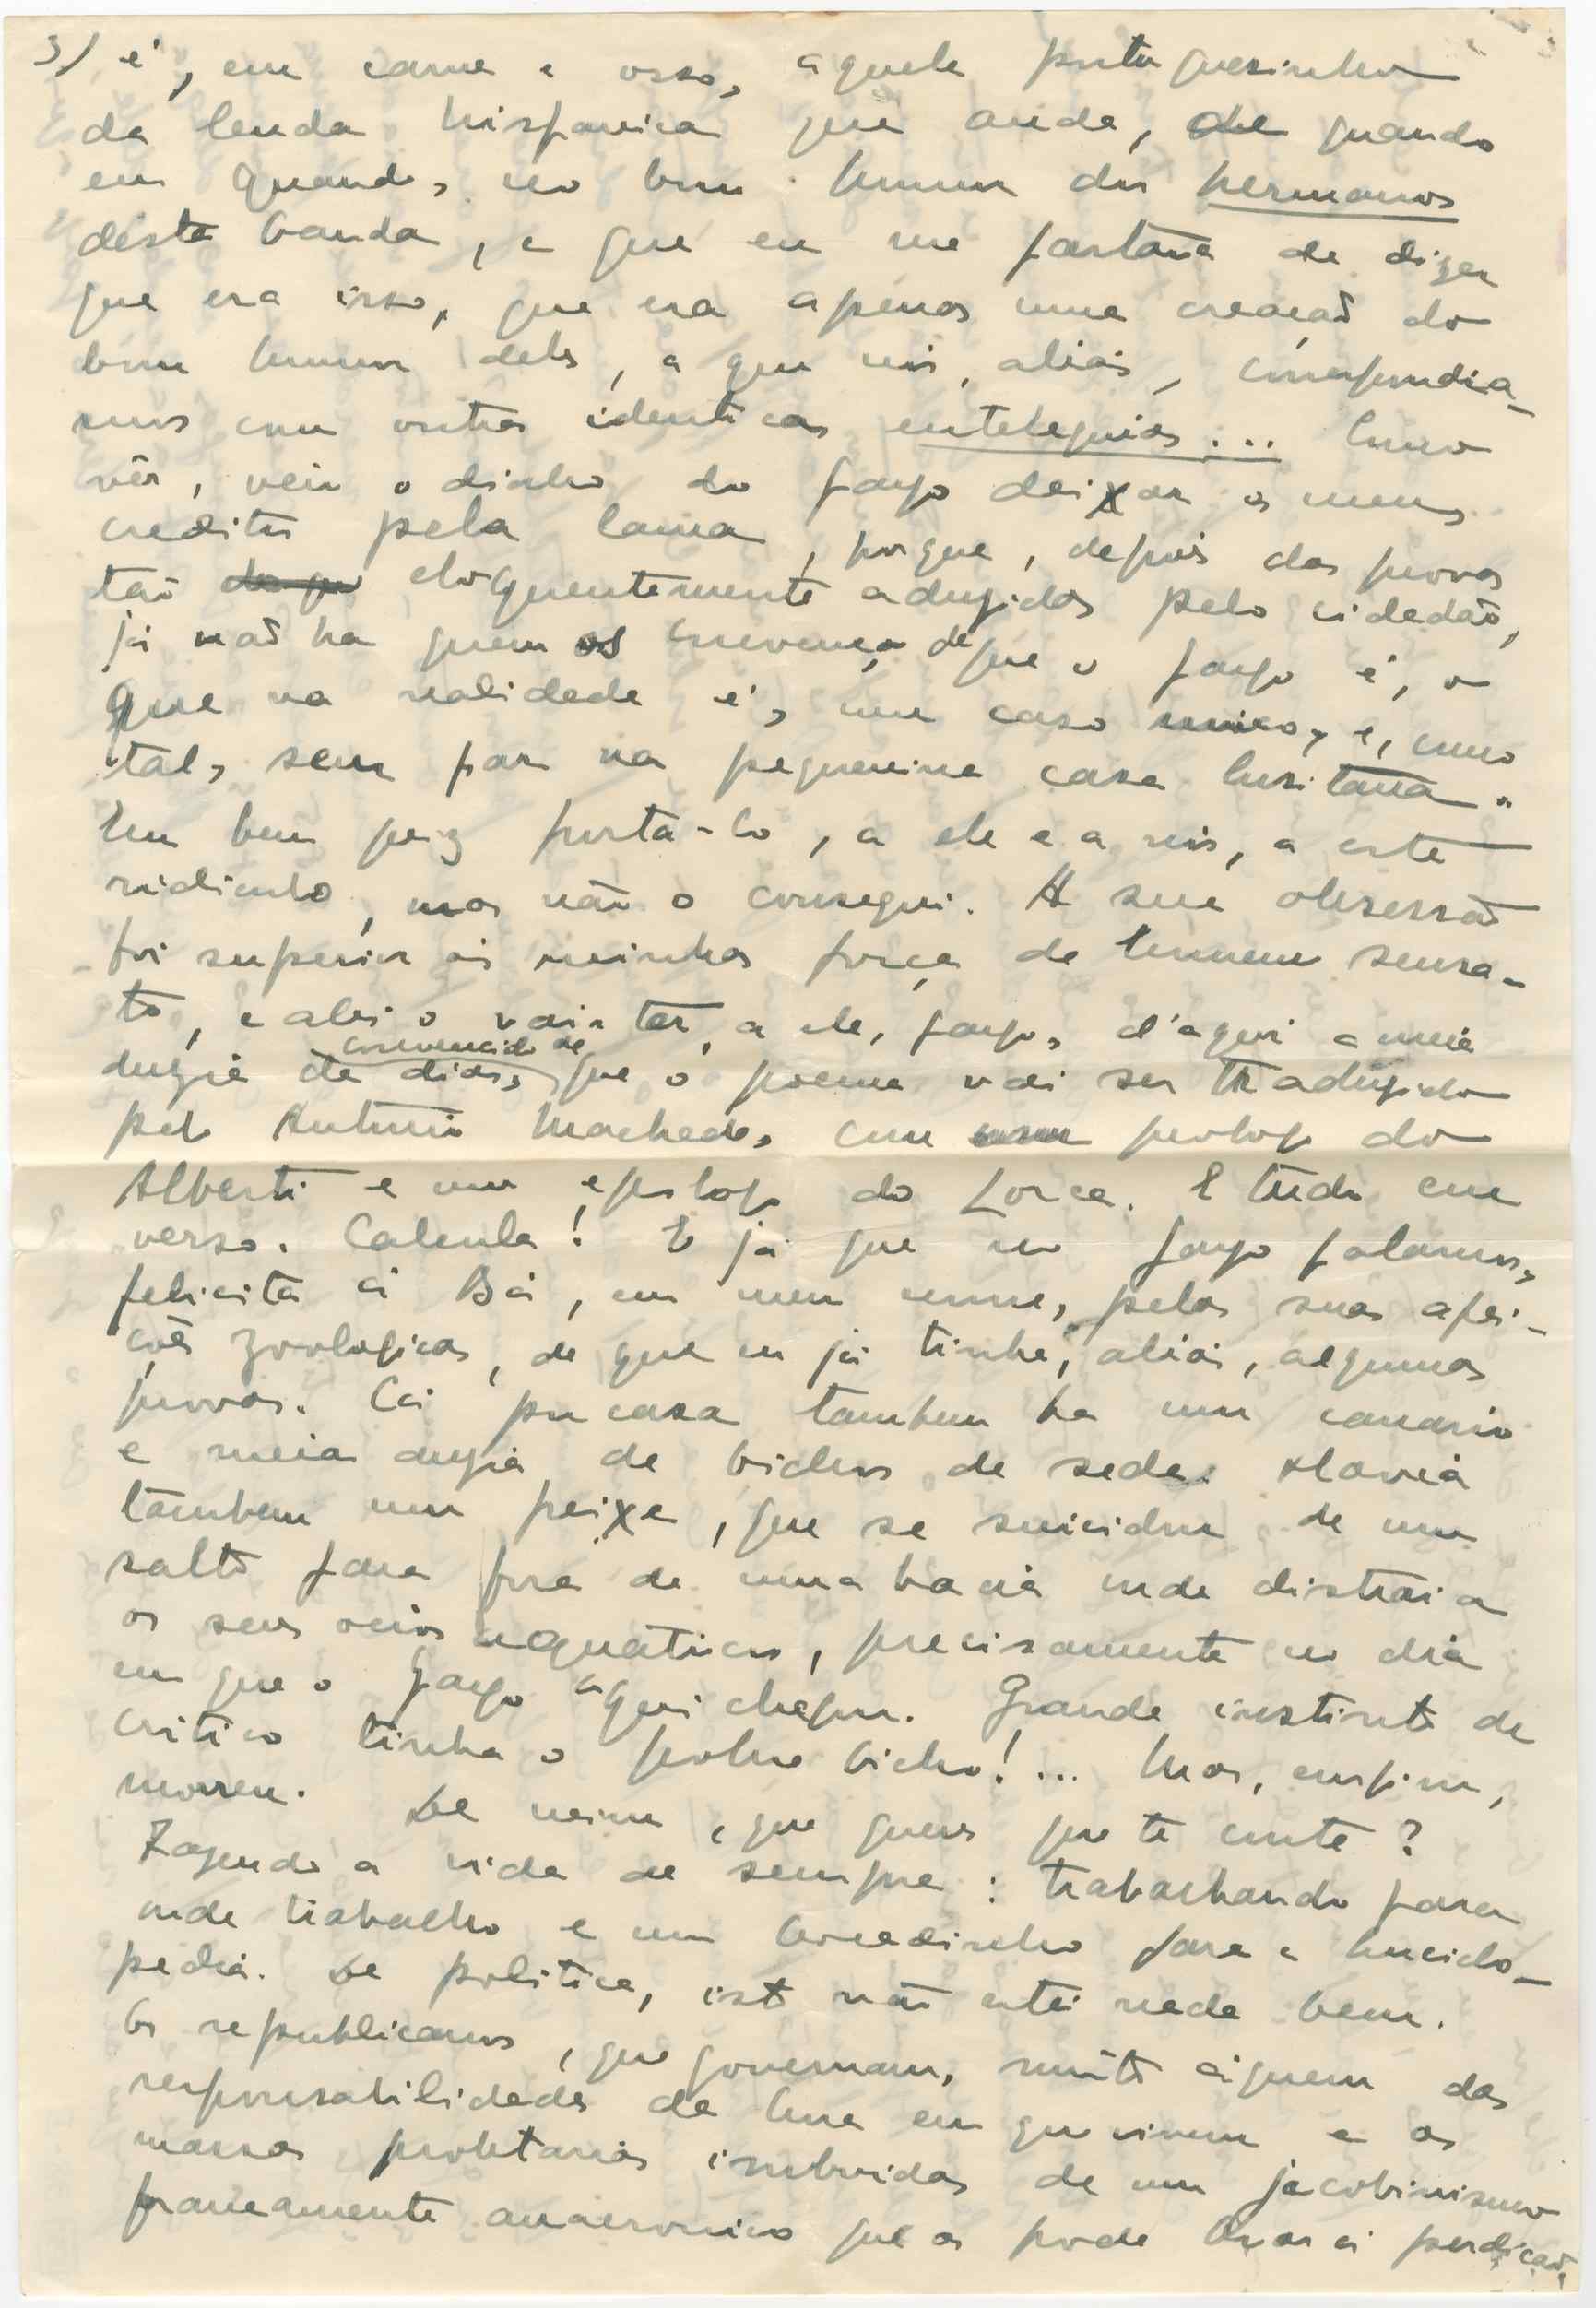 3/ é, em carne e osso, aquele portuguesinho
da lenda hispanica que anda, de quando
em quando, no bom humor dos hermanos
désta banda, e que eu me fartava de dizer
que era isso, que era apenas uma creação do
bom humor deles, a que nós, aliás, correspondia-
mos com outras identicas entelequias... Como
vês, veiu o diacho do gajo deixar os meus
creditos pela lama, porque, depois das provas
tão eloquentemente aduzidas pelo cidadão,
já não ha quem os convença de que o gajo é, o
que na realidade é, um caso unico, e, como
tal, sem par na pequenina casa lusitana.
Eu bem quiz furta-lo, a ele e a nós, a este
ridiculo, mas não o consegui. A sua obsessão
foi superior ás minhas forças de homem sensa-
to, e ahi o vais ter, a ele, gajo, d'aqui a meia
duzia de dias, convencido de que o poema vai ser traduzido
pelo Antonio Machado, com um prologo do
Alberti e um epilogo do Lorca. E tudo em
verso. Calcula! E já que no gajo falamos,
felicita a Bá, em meu nome, pelas suas afei-
ções zoologicas, de que eu já tinha, aliás, algumas
provas. Cá por casa tambem ha um canario
e meia duzia de bichos de seda. Havia
tambem um peixe, que se suicidou de um
salto para fora de uma bacia onde distraia
os seus ocios aquaticos, precisamente no dia
em que o gajo aqui chegou. Grande instinto de
critico tinha o pobre bicho!... Mas, emfim,
morreu. De mim, que queres que te conte?
Fazendo a vida de sempre: trabalhando para
onde trabalho e um bocadinho para a Enciclo-
pedia. De politica, isto não está nada bem.
Os republicanos, que governam, muito áquem das
responsabilidades da hora em que vivem e as
massas proletarias imbuidas de um jacobinismo
francamente anacronico que as pode levar á perdição,